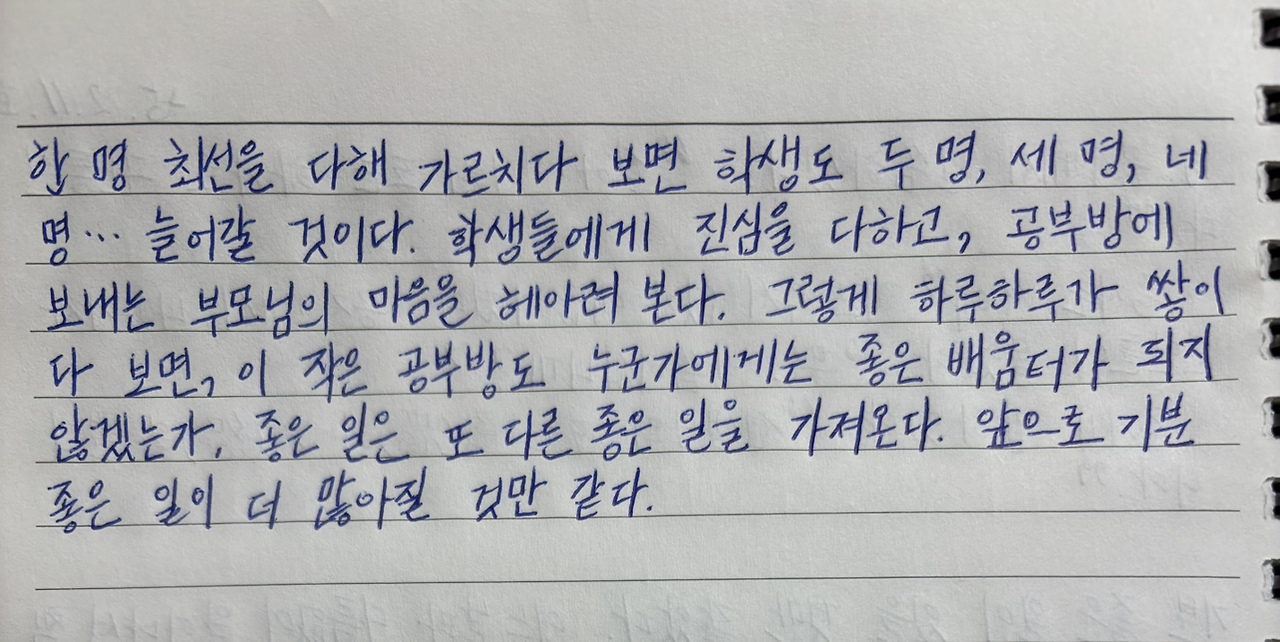 한 명 최선을 다해 가르치다 보면 학생도 두 명, 세 명, 네
명… 늘어갈 것이다. 학생들에게 진심을 다하고, 공부방에
보내는 부모님의 마음을 헤아려 본다. 그렇게 하루하루가 쌓이
다 보면, 이 작은 공부방도 누군가에게는 좋은 배움터가 되지
않겠는가. 좋은 일은 또 다른 좋은 일을 가져온다. 앞으로 기분
좋은 일이 더 많아질 것만 같다.